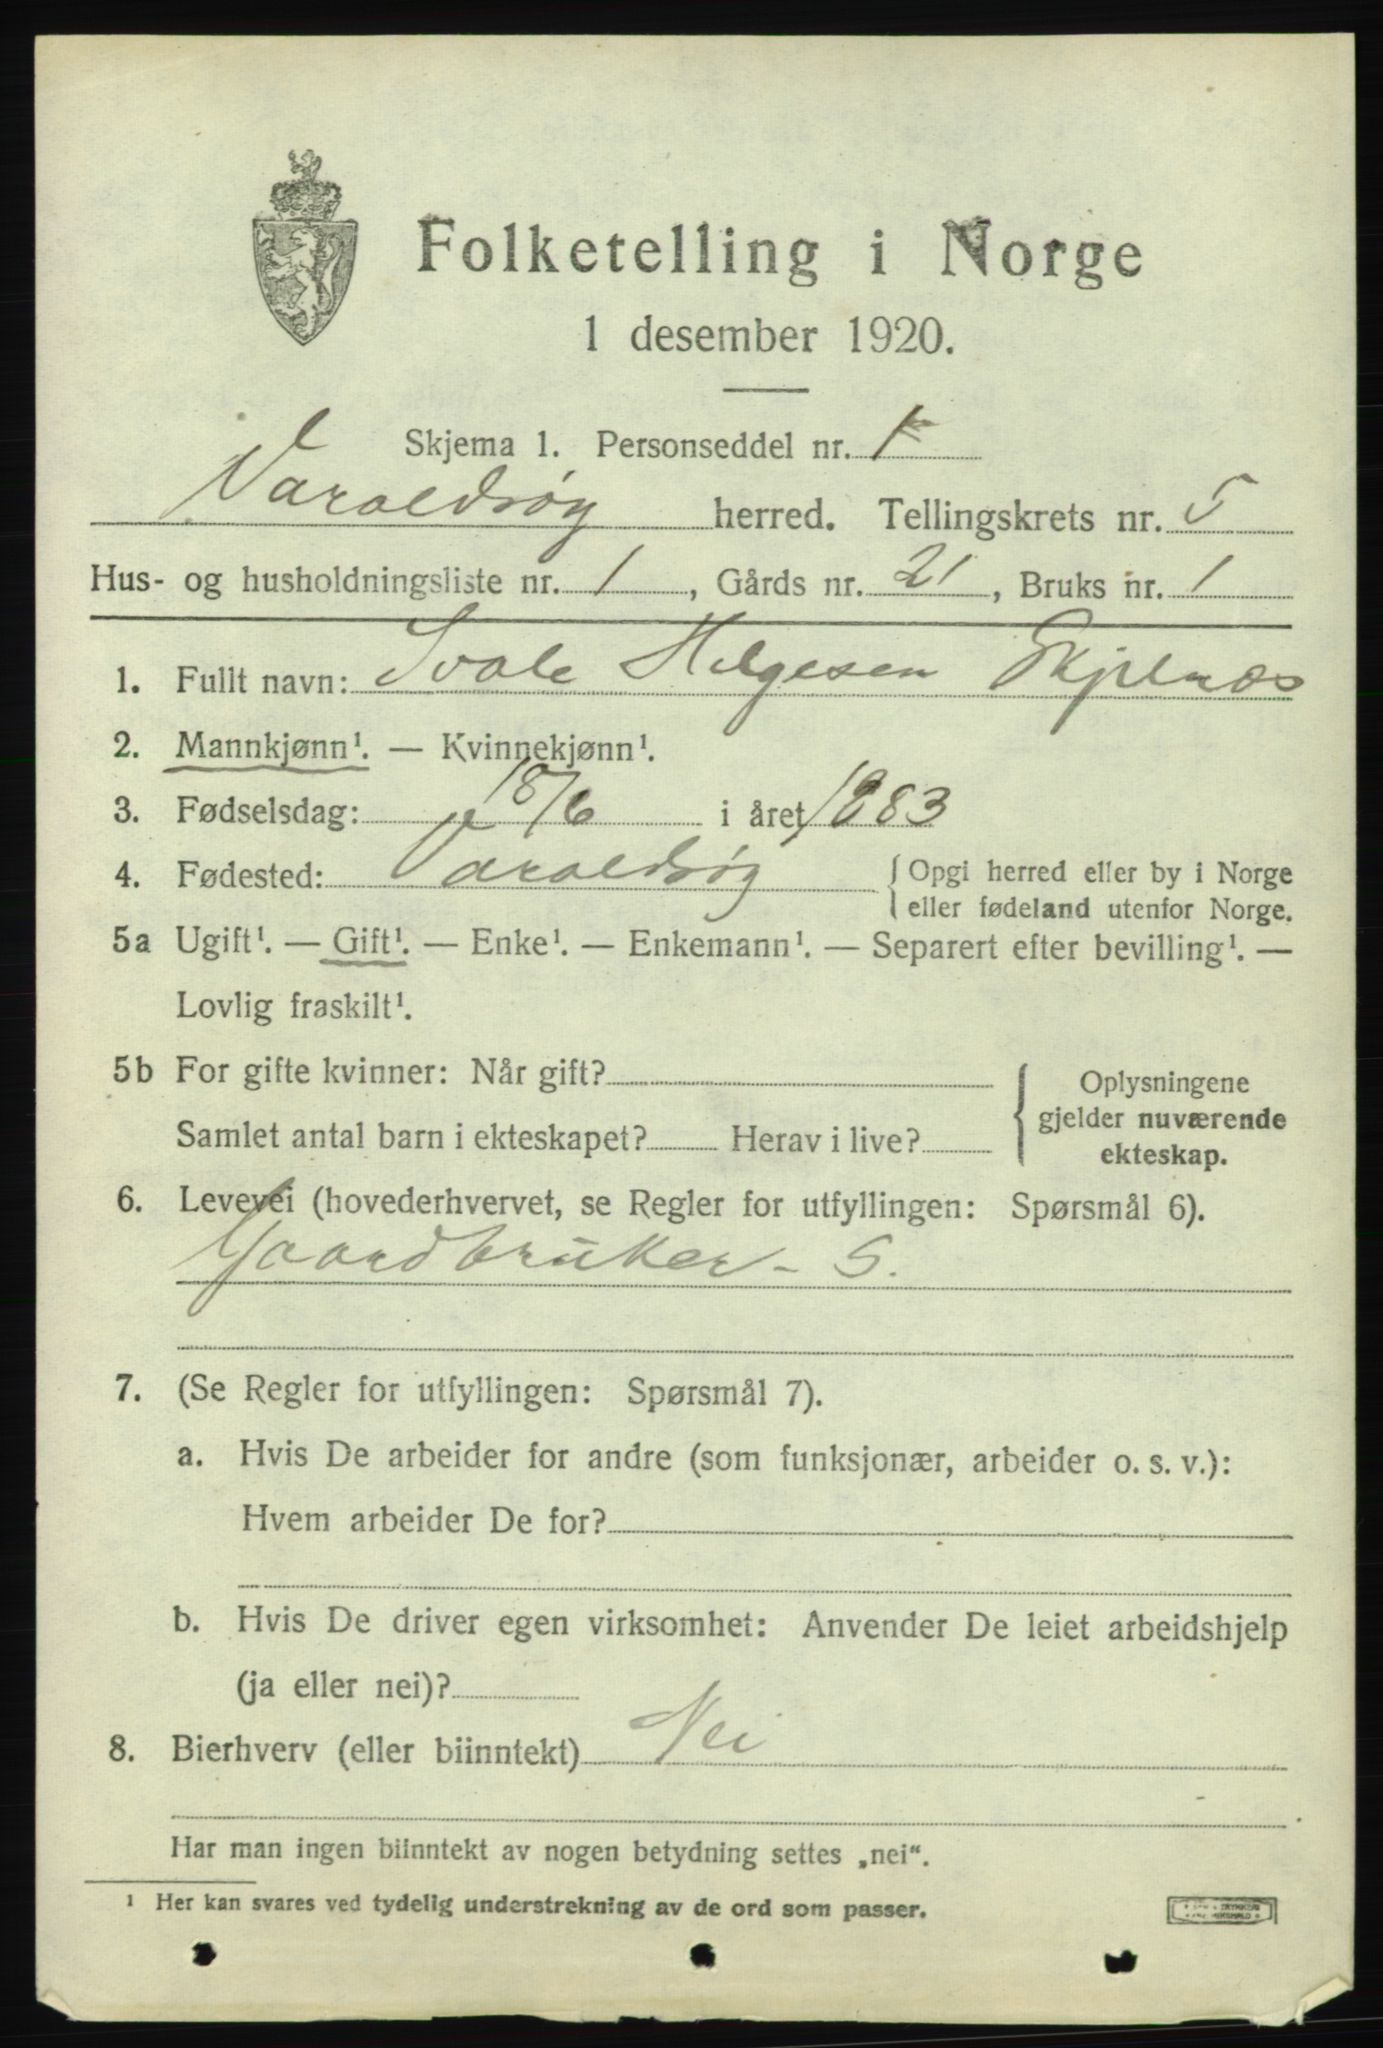 Folketelling i Norge
1 desember 1920.
Skjema 1. Personseddel nr. 1
Varaldsøy herred. Tellingskrets nr. 5
Hus- og husholdningsliste nr. 1, Gårds nr. 21, Bruks nr. 1
1. Fullt navn: Svale Helgesen Skjelnæs
2. Mannkjønn¹. — Kvinnekjønn¹.
3. Fødselsdag: 18/6 i året 1883
4. Fødested: Varaldsøy { Opgi herred eller by i Norge
eller fødeland utenfor Norge.
5a Ugift¹. — Gift¹. — Enke¹. — Enkemann¹. — Separert efter bevilling¹. —
Lovlig fraskilt¹.
5b For gifte kvinner: Når gift?
Samlet antal barn i ekteskapet? Herav i live?
{ Oplysningene
gjelder nuværende
ekteskap.
6. Levevei (hovederhvervet, se Regler for utfyllingen: Spørsmål 6).
Gaardbruker - S.
7. (Se Regler for utfyllingen: Spørsmål 7).
a. Hvis De arbeider for andre (som funksjonær, arbeider o. s. v.):
Hvem arbeider De for?
b. Hvis De driver egen virksomhet: Anvender De leiet arbeidshjelp
(ja eller nei)?
8. Bierhverv (eller biinntekt) Nei
Har man ingen biinntekt av nogen betydning settes „nei“.
¹ Her kan svares ved tydelig understrekning av de ord som passer.